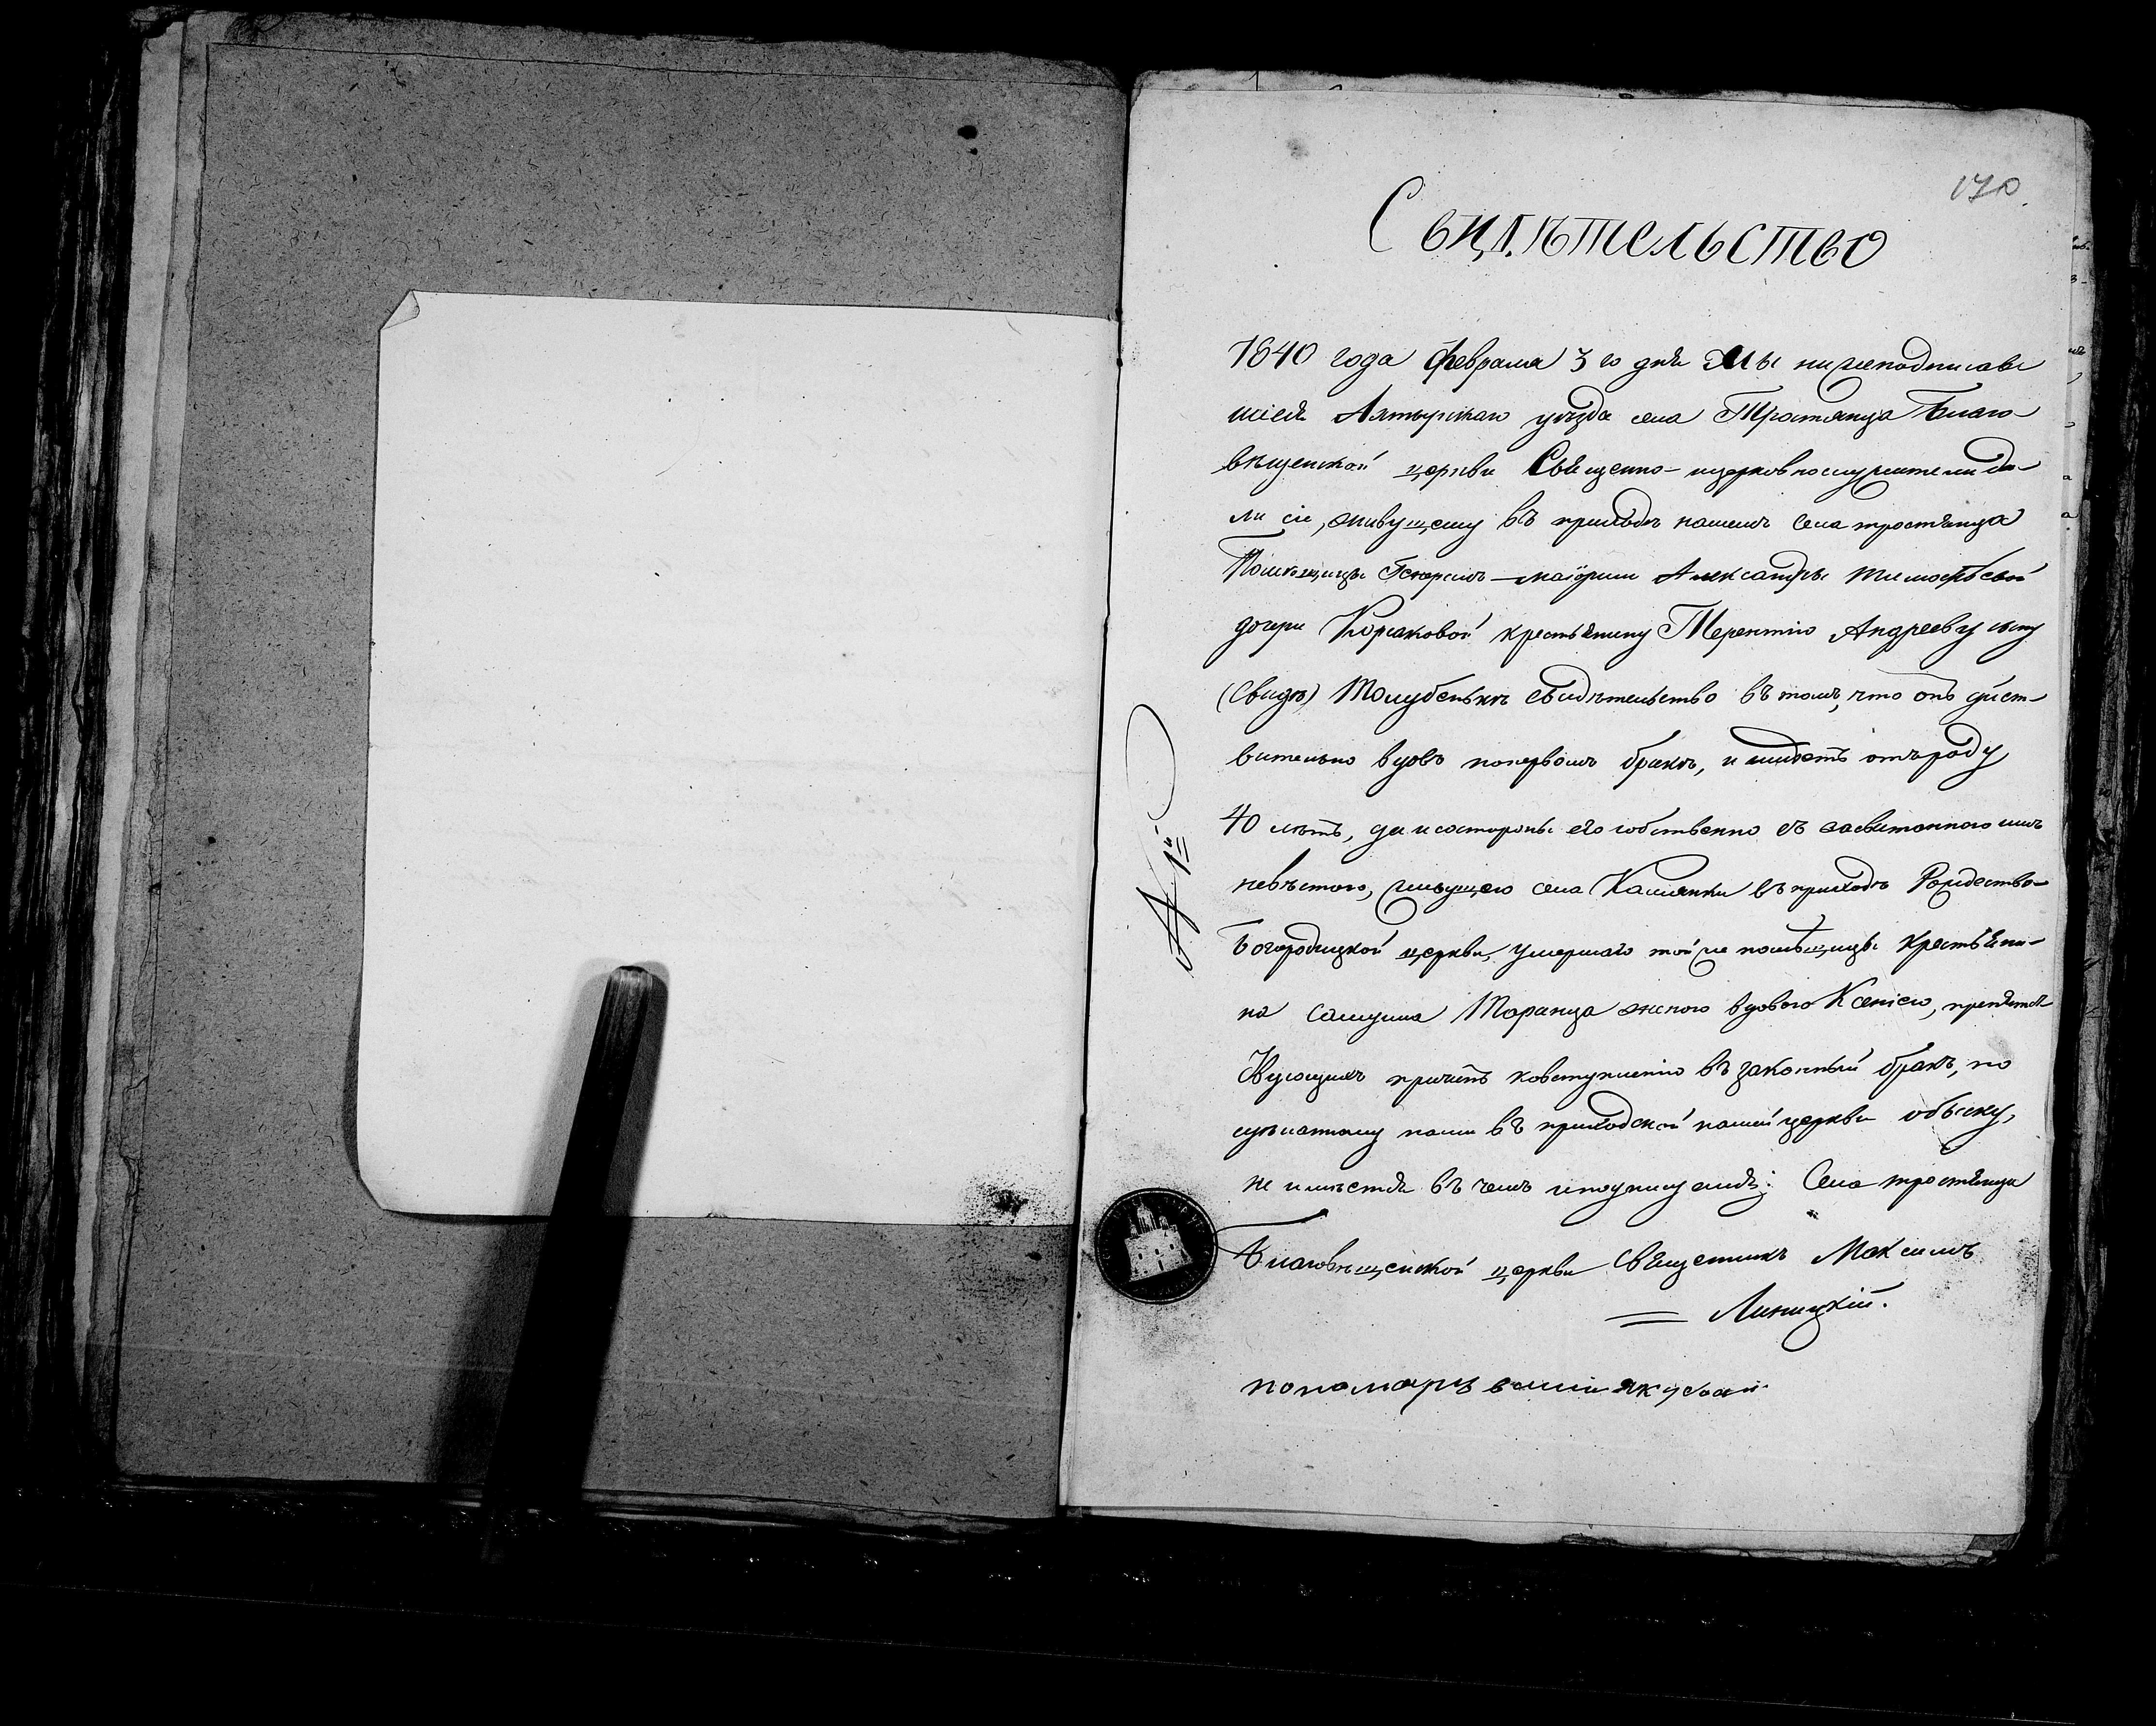 170
Свидѣтельство
1840 года февраля 3 го дня Мы нижеподписавь
шіеся Ахтырскаго уѣзда села Тростянца Благо
вѣщенской церкви Священно-ицерковнослужители да-
ли сіе, живущему въ приходѣ нашемъ села тростянца
Помѣщицы Генералъ-маіорши Александры тимофѣевой
дочери Корсаковой крестьянину Терентію Андрееву сыну
Голубенькѣ свидѣтельство въ томъ, что онъ дѣйст-
вительно вдовъ поперьвомъ бракѣ, и имѣетъ отъроду
40 лѣтъ, да и состороны его собственно съ засватанною имъ
невѣстою, живущею села Камянки въ приходѣ Рождество-
Богородицкой церкви, умершаго той же помѣщицы крестьяни-
на самуила Таранца женою вдовою Ксеніею, препятст
вующихъ причинъ ковступленію въ законный бракъ, по
учиненному нами въ приходской нашей церкви обыску,
не имѣется въ чемъ иподписуемся: Села тростянца
Благовѣщенской церкви Священникъ Максимъ
Линицкій.
пономарь
№ 1й